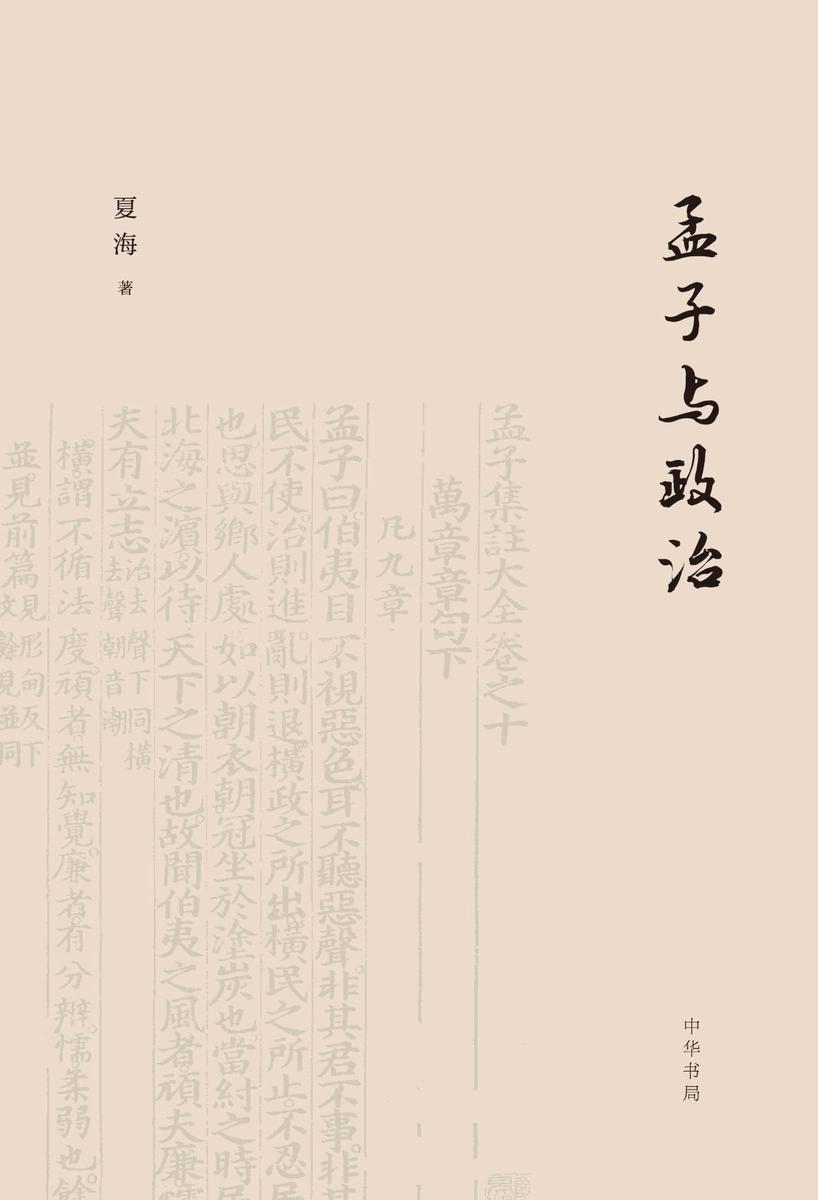 孟子与政治
夏海 著
中华书局
孟子集註大全卷之十
萬章章句下
凡九章
孟子曰伯夷目不視惡色耳不聽惡聲非其君不事非其
民不使治則進亂則退橫政之所出橫民之所止不忍居
也思與鄉人處如以朝衣朝冠坐於塗炭也當紂之時居
北海之濱以待天下之清也故聞伯夷之風者頑夫廉懦
夫有立志治去聲下同橫去聲朝音潮
橫謂不循法度頑者無知覺廉者有分辨懦柔弱也餘
並見前篇見形甸反下文餘見並同